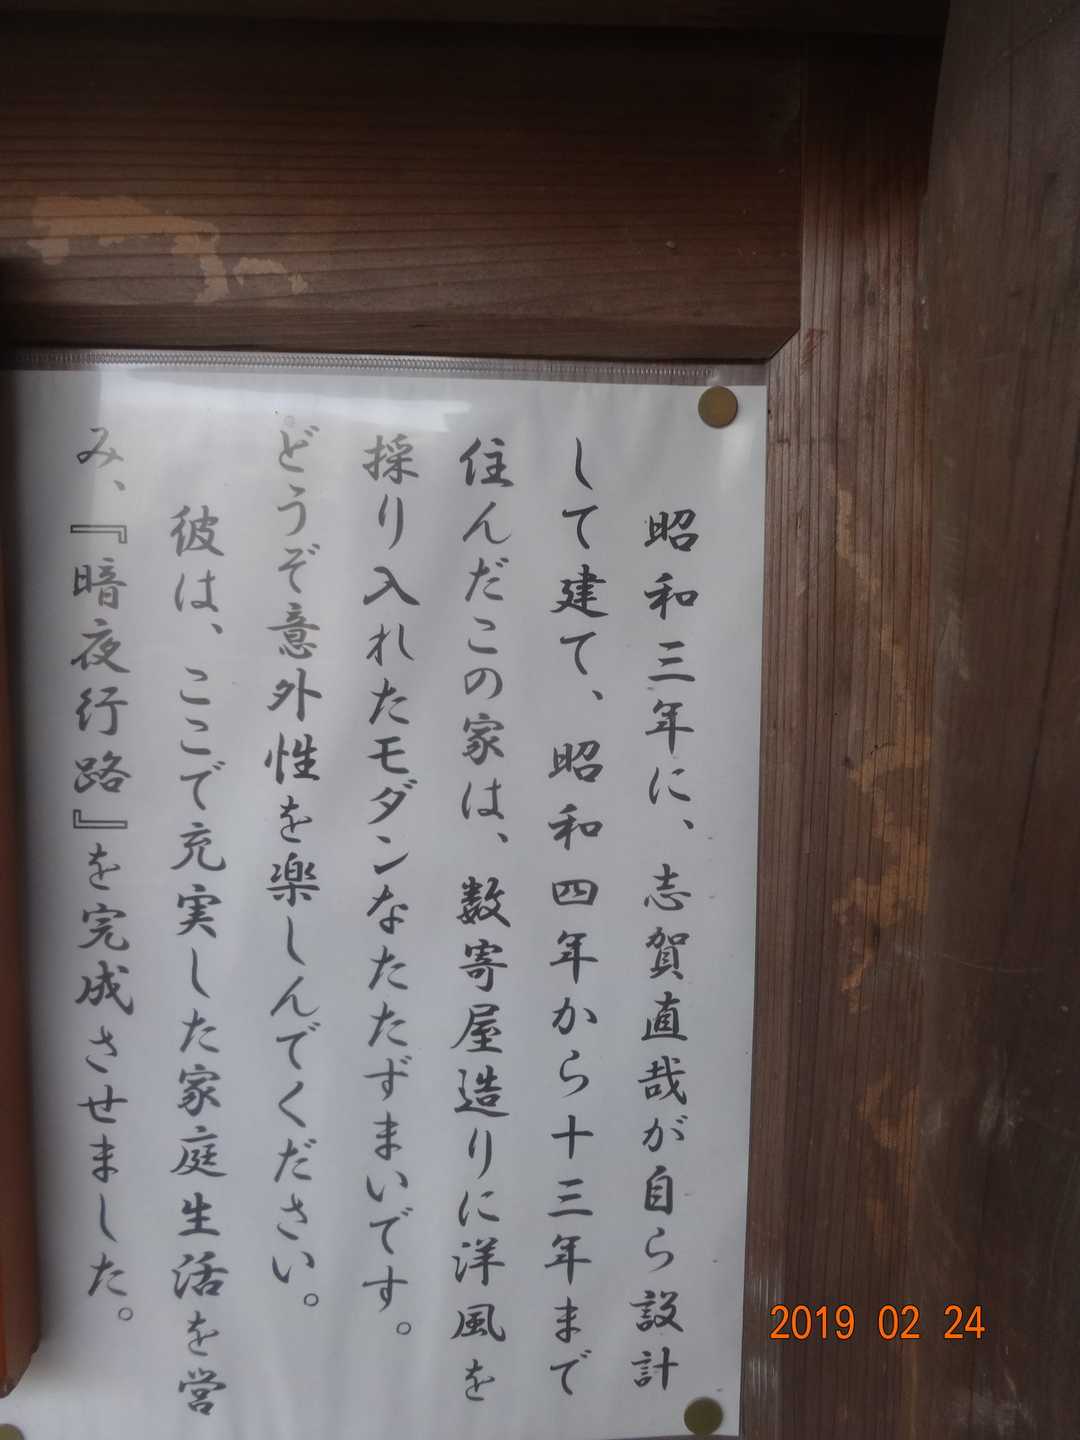 昭和三年に、志賀直哉が自ら設計
して建て、昭和四年から十三年まで
住んだこの家は、数寄屋造りに洋風を
採り入れたモダンなたたずまいです。
どうぞ意外性を楽しんでください。
彼は、ここで充実した家庭生活を営
み、『暗夜行路』を完成させました。
2019 02 24